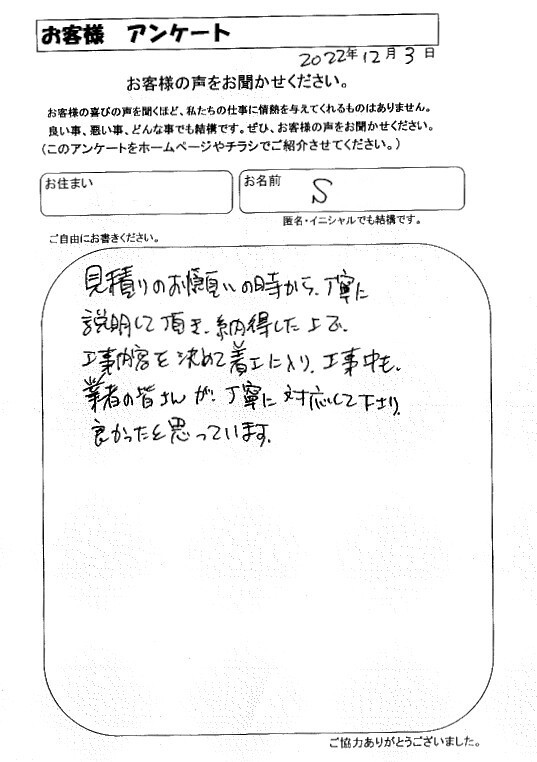 お客様 アンケート
2022年12月3日
お客様の声をお聞かせください。
お客様の喜びの声を聞くほど、私たちの仕事に情熱を与えてくれるものはありません。
良い事、悪い事、どんな事でも結構です。ぜひ、お客様の声をお聞かせください。
(このアンケートをホームページやチラシでご紹介させてください。)
お住まい
お名前 S
匿名・イニシャルでも結構です。
ご自由にお書きください。
見積りのお願いの時から、丁寧に
説明して頂き、納得した上で、
工事内容を決めて着工に入り、工事中も、
業者の皆さんが、丁寧に対応して下さり、
良かったと思っています。
ご協力ありがとうございました。